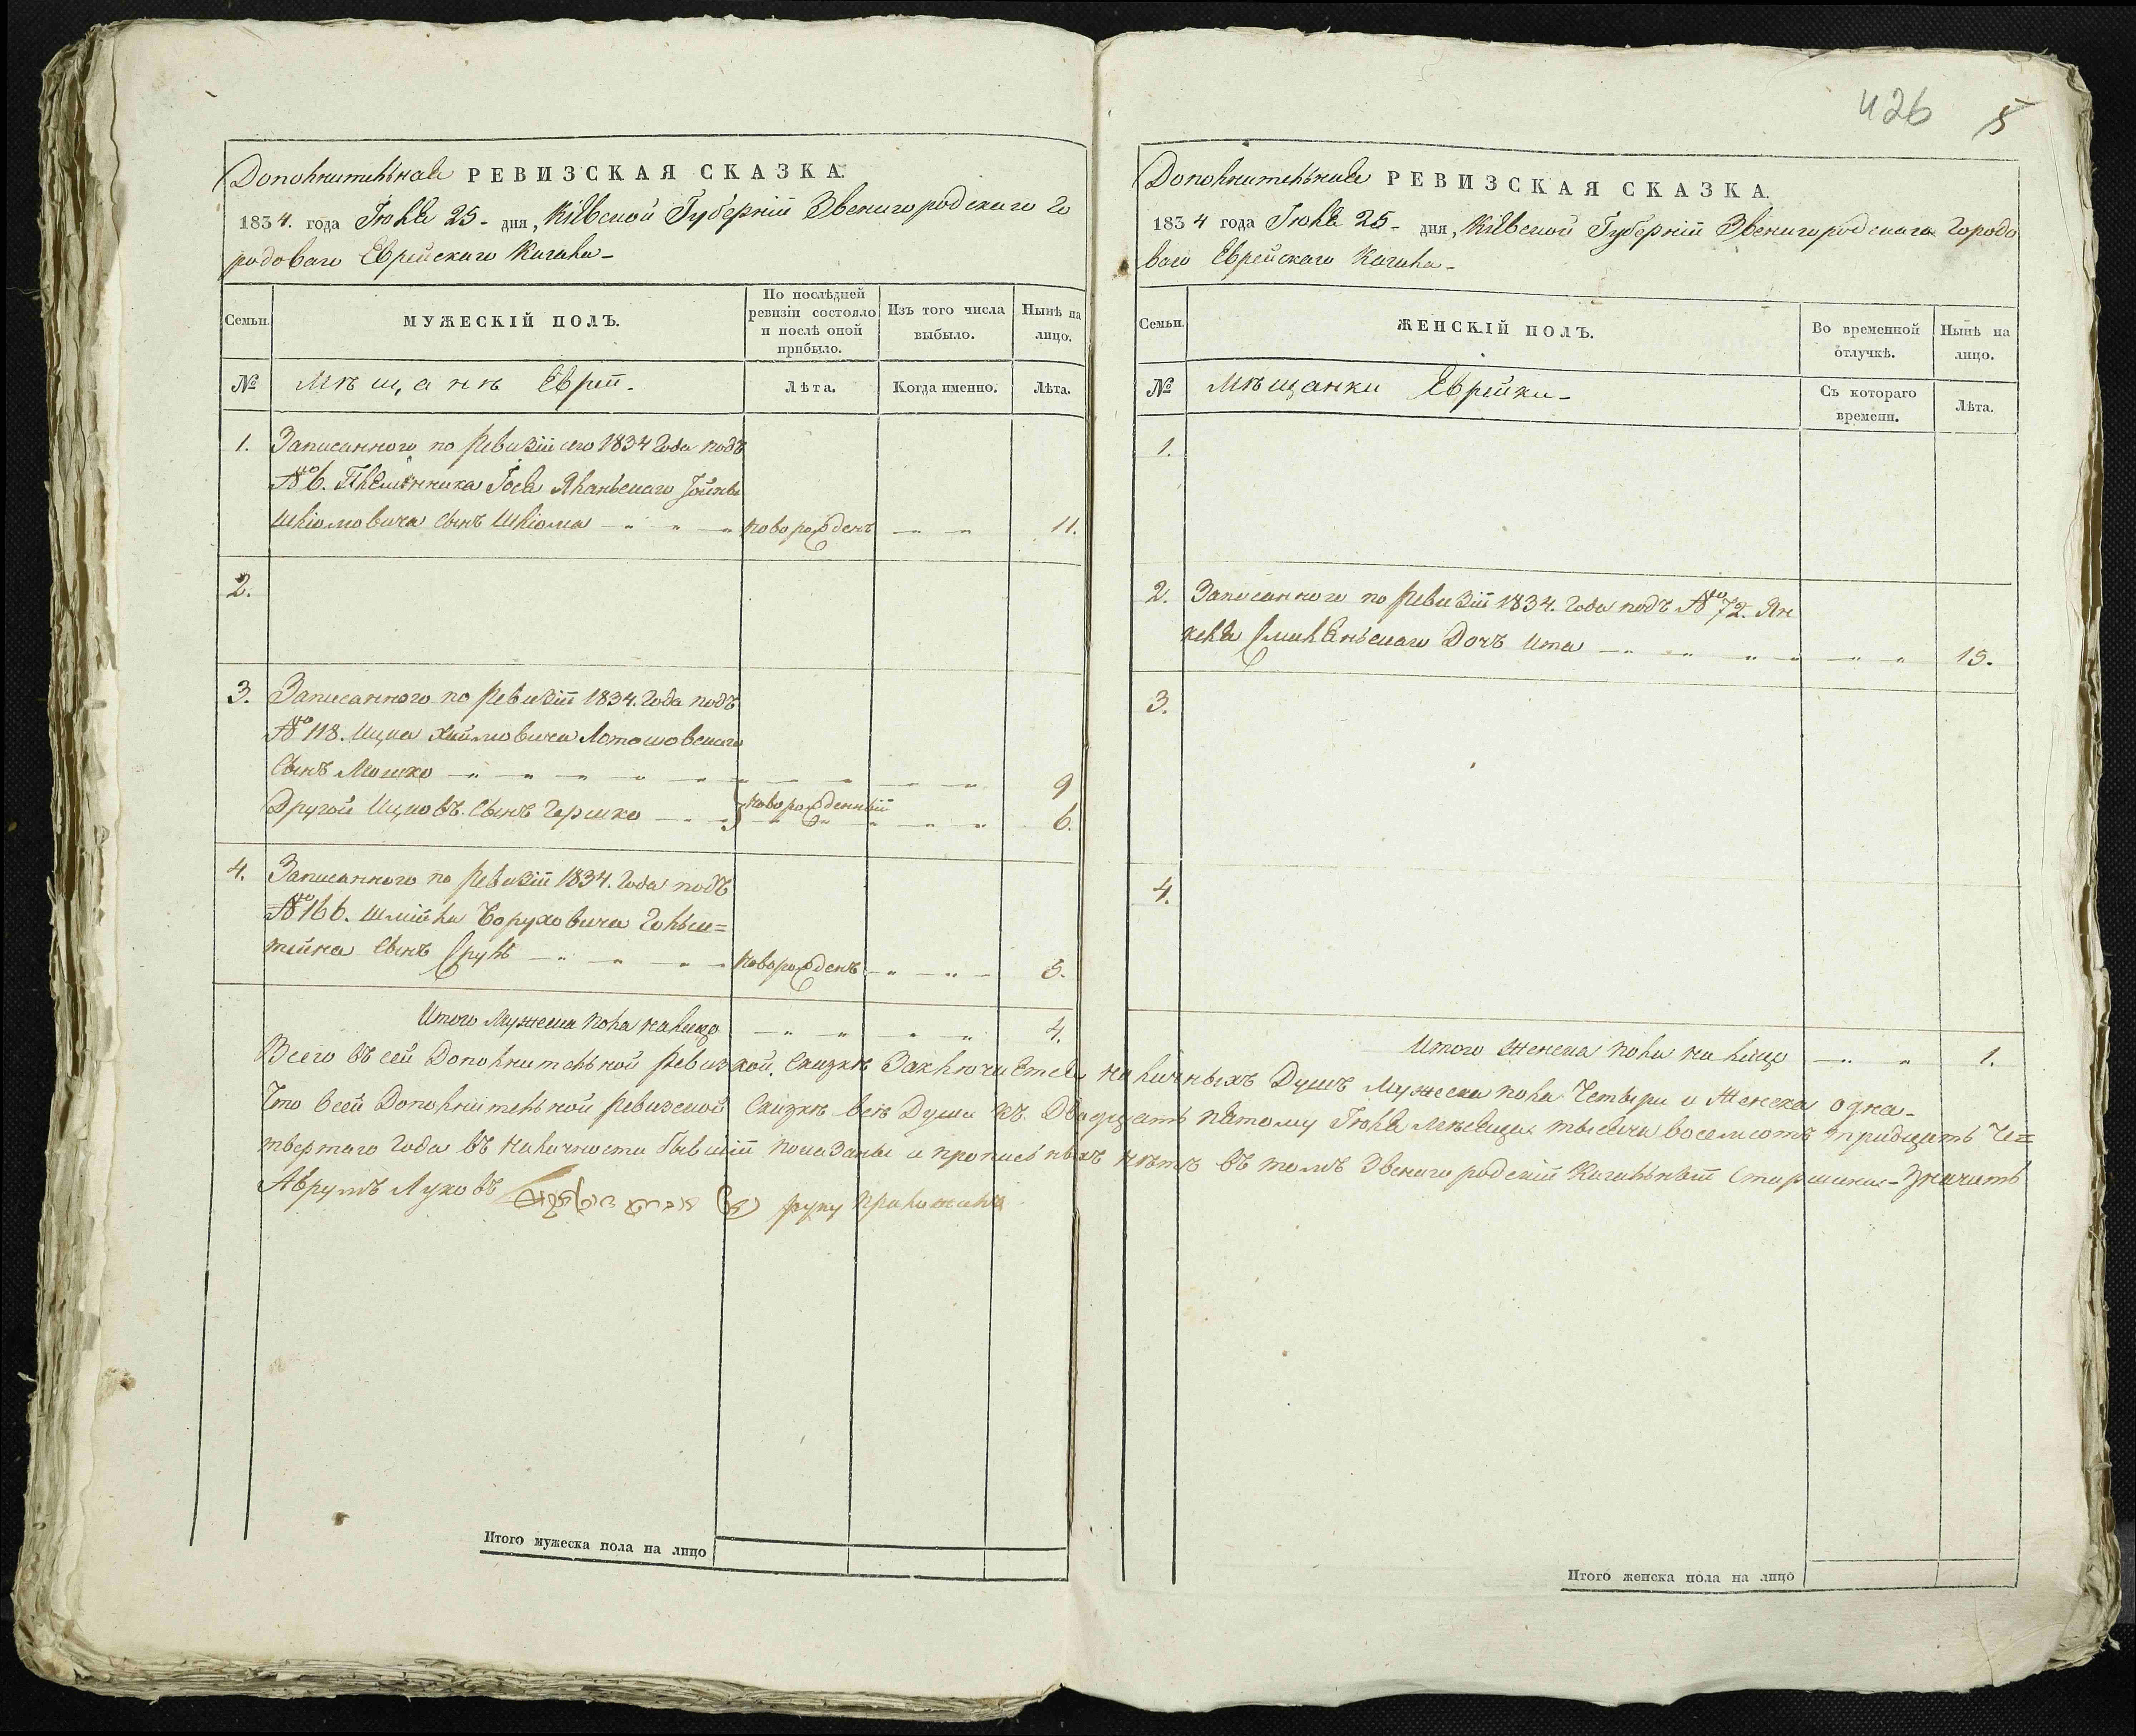 426 5
Дополнительная РЕВИЗСКАЯ СКАЗКА.
1834. года Іюля 25 - дня, Кіевской Губерніи Звенигородскаго Го
родоваго Еврейскаго Кагала -
Семьи.
МУЖЕСКІЙ ПОЛЪ.
По послѣдней ревизіи состояло и послѣ оной прибыло.
Изъ того числа выбыло.
Нынѣ на лицо.
№ Мѣщанѣ Евреи. Лѣта. Когда именно. Лѣта.
1. Записанного по Ревизіи сего 1834 Года подъ
№ 6. Племѣнника Іося Яланьскаго
Шліомовича Сынъ Шліома новорожденъ 11.
2.
3. Записанного по Ревизіи 1834. Года подъ
№ 118. Ицка Хаймовича
Сынъ Мошко 9
Другой Ицковъ. Сынъ Гершко новорожденныи 6.
4. Записанного по Ревизіи 1834. Года подъ
№ 166. Шмійла Боруховича Гольш=
тейна Сынъ Сруль новорожденъ 5.
Итого Мужеска пола налицо 4.
Дополнительная РЕВИЗСКАЯ СКАЗКА.
1834 года Іюля 25 - дня, Кіевской Губерніи Звенигородскаго Городо
ваго Еврейскаго Кагала -
Семьи.
ЖЕНСКІЙ ПОЛЪ.
Во временной отлучкѣ.
Нынѣ на лицо.
№ Мѣщанки Еврейки - Съ котораго времени. Лѣта.
1.
2. Записанного по Ревизіи 1834. Года подъ № 72. Ян
келя Смиляньскаго Дочъ Ита 15.
3.
4.
Итого Женска пола на лицо 1.
Всего въ сей Дополнительной Ревизкой. Сказкѣ Заключается наличныхъ Душъ Мужеска пола Четыри и Женска одна -
Что всей Дополнительной Ревизской Сказкѣ всѣ Души къ. Двадцать пятому Іюля Мѣсяца тысяча восемсотъ тридцать Че=
твертаго Года въ наличности бывшіи показаны и прописныхъ нѣтъ въ томъ Звенигородскій Кагальный Старшина - Значитъ
Аврумъ Луковъ руку приложилъ
Итого мужеска пола на лицо
Итого женска пола на лицо